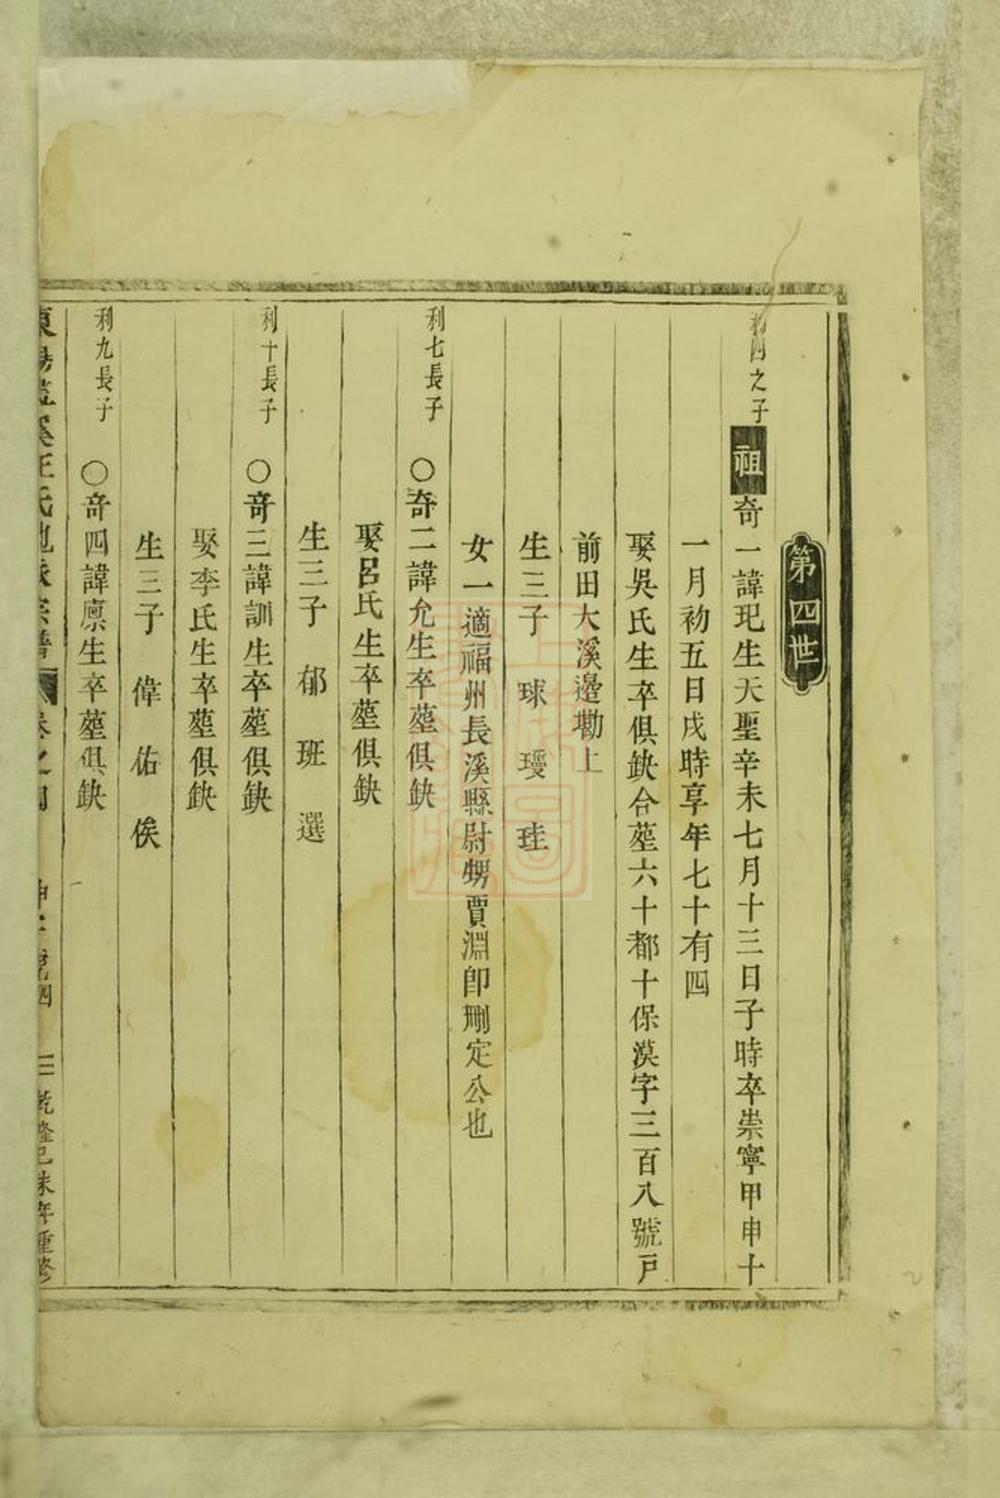 第四世
利四之子 祖 奇一諱玘生天聖辛未七月十三日子時卒崇寧甲申十
一月初五日戌時享年七十有四
娶吳氏生卒俱缺合塟六十都十保漠字三百八號戶
前田大溪邊墈上
生三子 球 璦 珪
女一適福州長溪縣尉甥賈淵卽刪定公也
利七長子 ○奇二諱允生卒塟俱缺
娶呂氏生卒塟俱缺
生三子 郁 班 選
利十長子 ○奇三諱訓生卒塟俱缺
娶李氏生卒塟俱缺
生三子 偉 佑 俟
利九長子 ○奇四諱廪生卒塟俱缺
東陽 溪王氏 派宗譜 卷之四 坤 號四 乾隆己未年重修